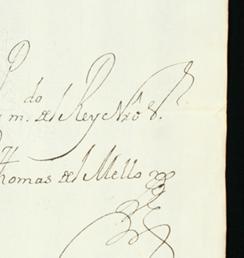 do
m. del Rey N.ro S.r
Thomas del Mello